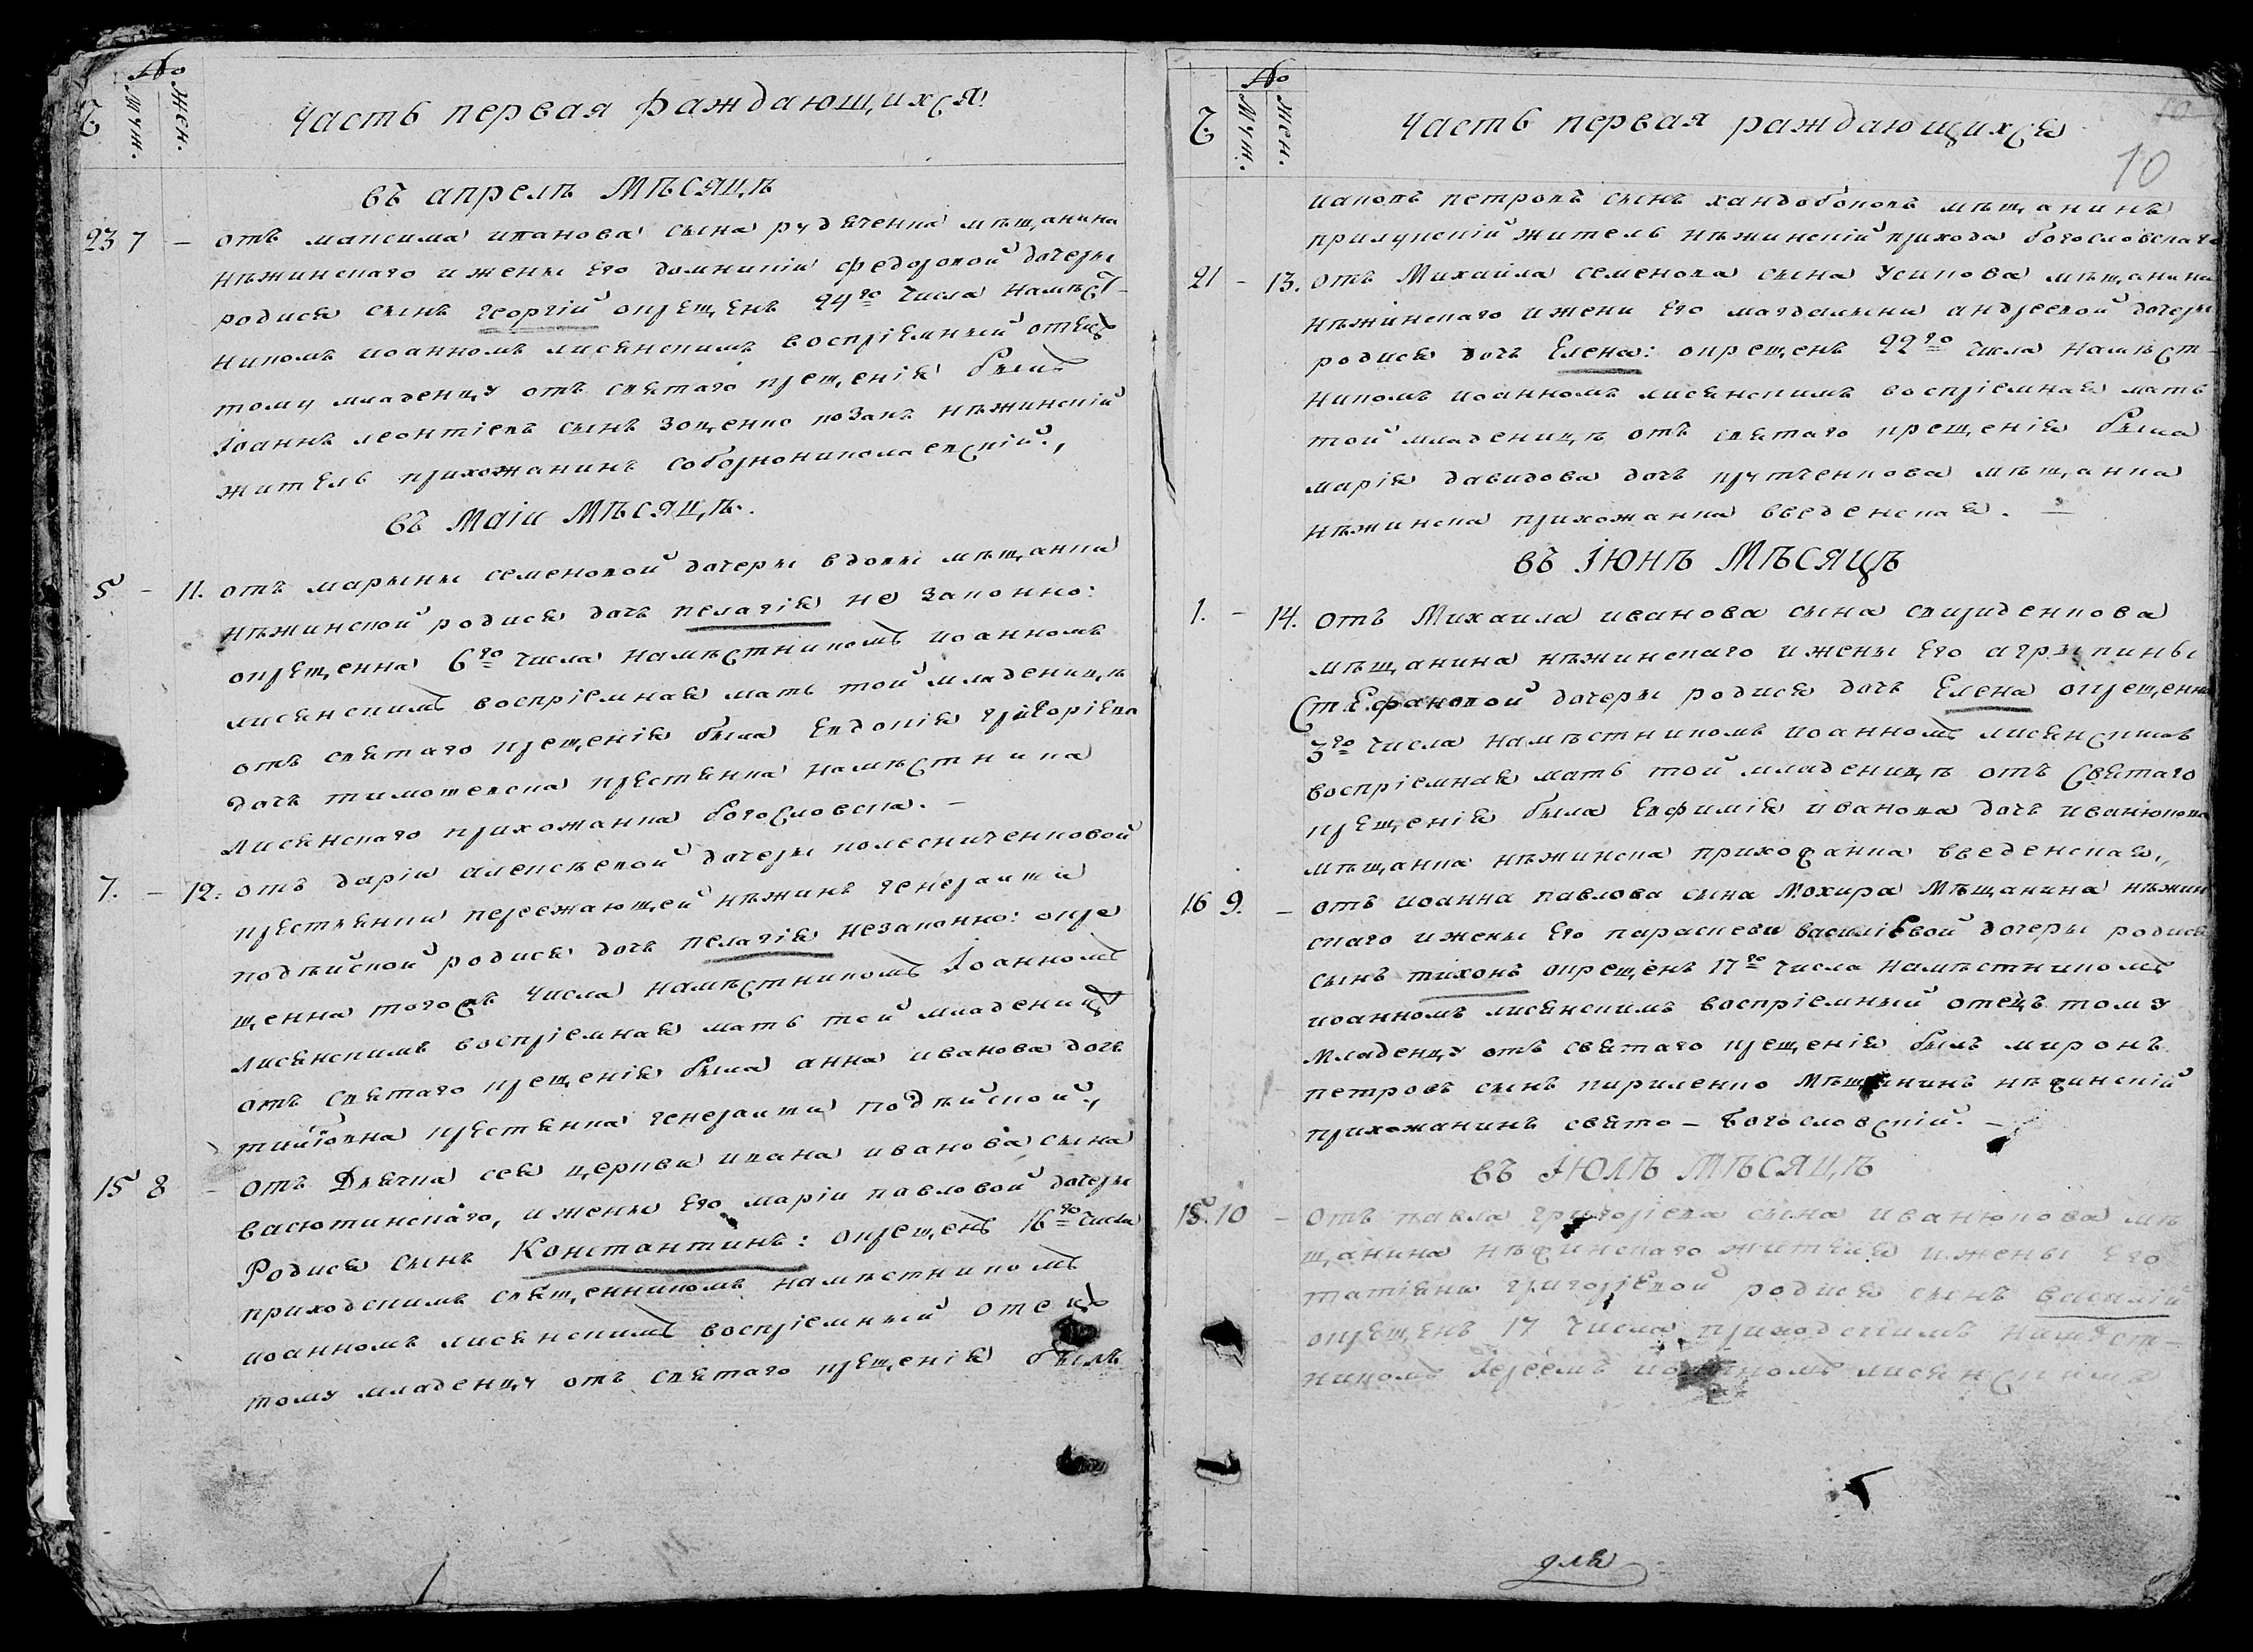 Ч. № Муж. Жен.
Часть первая раждающихся
въ апрелѣ мѣсяцѣ
23 7 – отъ максима иванова сына рудченка мѣщанина
нѣжинскаго и жены его домникіи федоровой дочеры
родися сынъ георгій окрещенъ 24го числа намѣст-
никомъ иоанномъ лисянскимъ воспріемный отецъ
тому младенцу отъ святаго крещенія былъ
Іоаннъ леонтіевъ сынъ зощенко козакъ нѣжинскій
житель прихожанинъ соборнониколаевскій.,
въ маіи мѣсяцѣ.
5 – 11. отъ марыны семеновой дочеры вдовы мѣщанки
нѣжинской родися дочь пелагія не законно:
окрещенна 6го числа намѣстникомъ иоанномъ
лисянскимъ воспріемная мать той младеницѣ
отъ святаго крещенія была Евдокія григоріева
дочь тимошевска крестянка намѣстника
лисянскаго прихожанка богословска. –
7. – 12. отъ даріи алексѣевой дочеры колесниченковой
крестянки переежающей нѣжинъ генеральши
подвиской родися дочь пелагія незаконно: окре
щенна тогожъ числа намѣстникомъ Іоанномъ
лисянскимъ воспріемная мать той младеницѣ
отъ святаго крещенія была анна иванова дочь
крестянка генеральши подвиской.,
15 8 – отъ Дячка сея церкви ивана иванова сына
васютинскаго, и жены его маріи павловой дочеры
Родися сынъ Константинъ: окрещенъ 16го числа
приходскимъ священникомъ намѣстникомъ
иоанномъ лисянскимъ воспріемный отецъ
тому младенцу отъ святаго крещенія былъ
Ч. № Муж. Жен.
Часть первая раждающихся
10
10
иаковъ петровъ сынъ хандобоковъ мѣщанинъ
прилуцкій житель нѣжинскій прихода богословскаго
21 – 13. отъ Михайла семенова сына Усикова мѣщанина
нѣжинскаго и жени его магдалыни андреевой дочеры
родися дочь Елена: окрещенъ 22го числа намѣст-
никомъ иоанномъ лисянскимъ воспріемная мать
той младеницѣ отъ святаго крещенія была
марія давидова дочь крутченкова мѣщанка
нѣжинска прихожанка введенская. –
въ Іюнѣ мѣсяцѣ
1. – 14. отъ Михаила иванова сына свириденкова
мѣщанина нѣжинскаго и жены его агрыпины
Стефановой дочеры родися дочь Елена окрещенна
3го числа намѣстникомъ иоанномъ лисянскимъ
воспріемная мать той младеницѣ отъ святаго
крещенія была Евфимія иванова дочь иванюкова
мѣщанка нѣжинска прихожанка введенская.,
16 9. – отъ иоанна павлова сына Мохира Мѣщанина нѣжин
скаго и жены его параскеви василіевой дочеры родися
сынъ тихонъ окрещенъ 17го числа намѣстникомъ
иоанномъ лисянскимъ воспріемный отецъ тому
младенцу отъ святаго крещенія былъ миронъ
петровъ сынъ кириленко Мѣщанинъ нѣжинскій
прихожанинъ свято – Богословскій. –
въ Іюлѣ мѣсяцѣ
15. 10 – отъ павла григоріева сына иванюкова мѣ
щанина нѣжинскаго жителя и жены его
татіяни григоріевой родися сынъ василій
окрещенъ 17 числа приходскимъ намѣст-
никомъ Іереемъ иоанномъ лисянскимъ
для